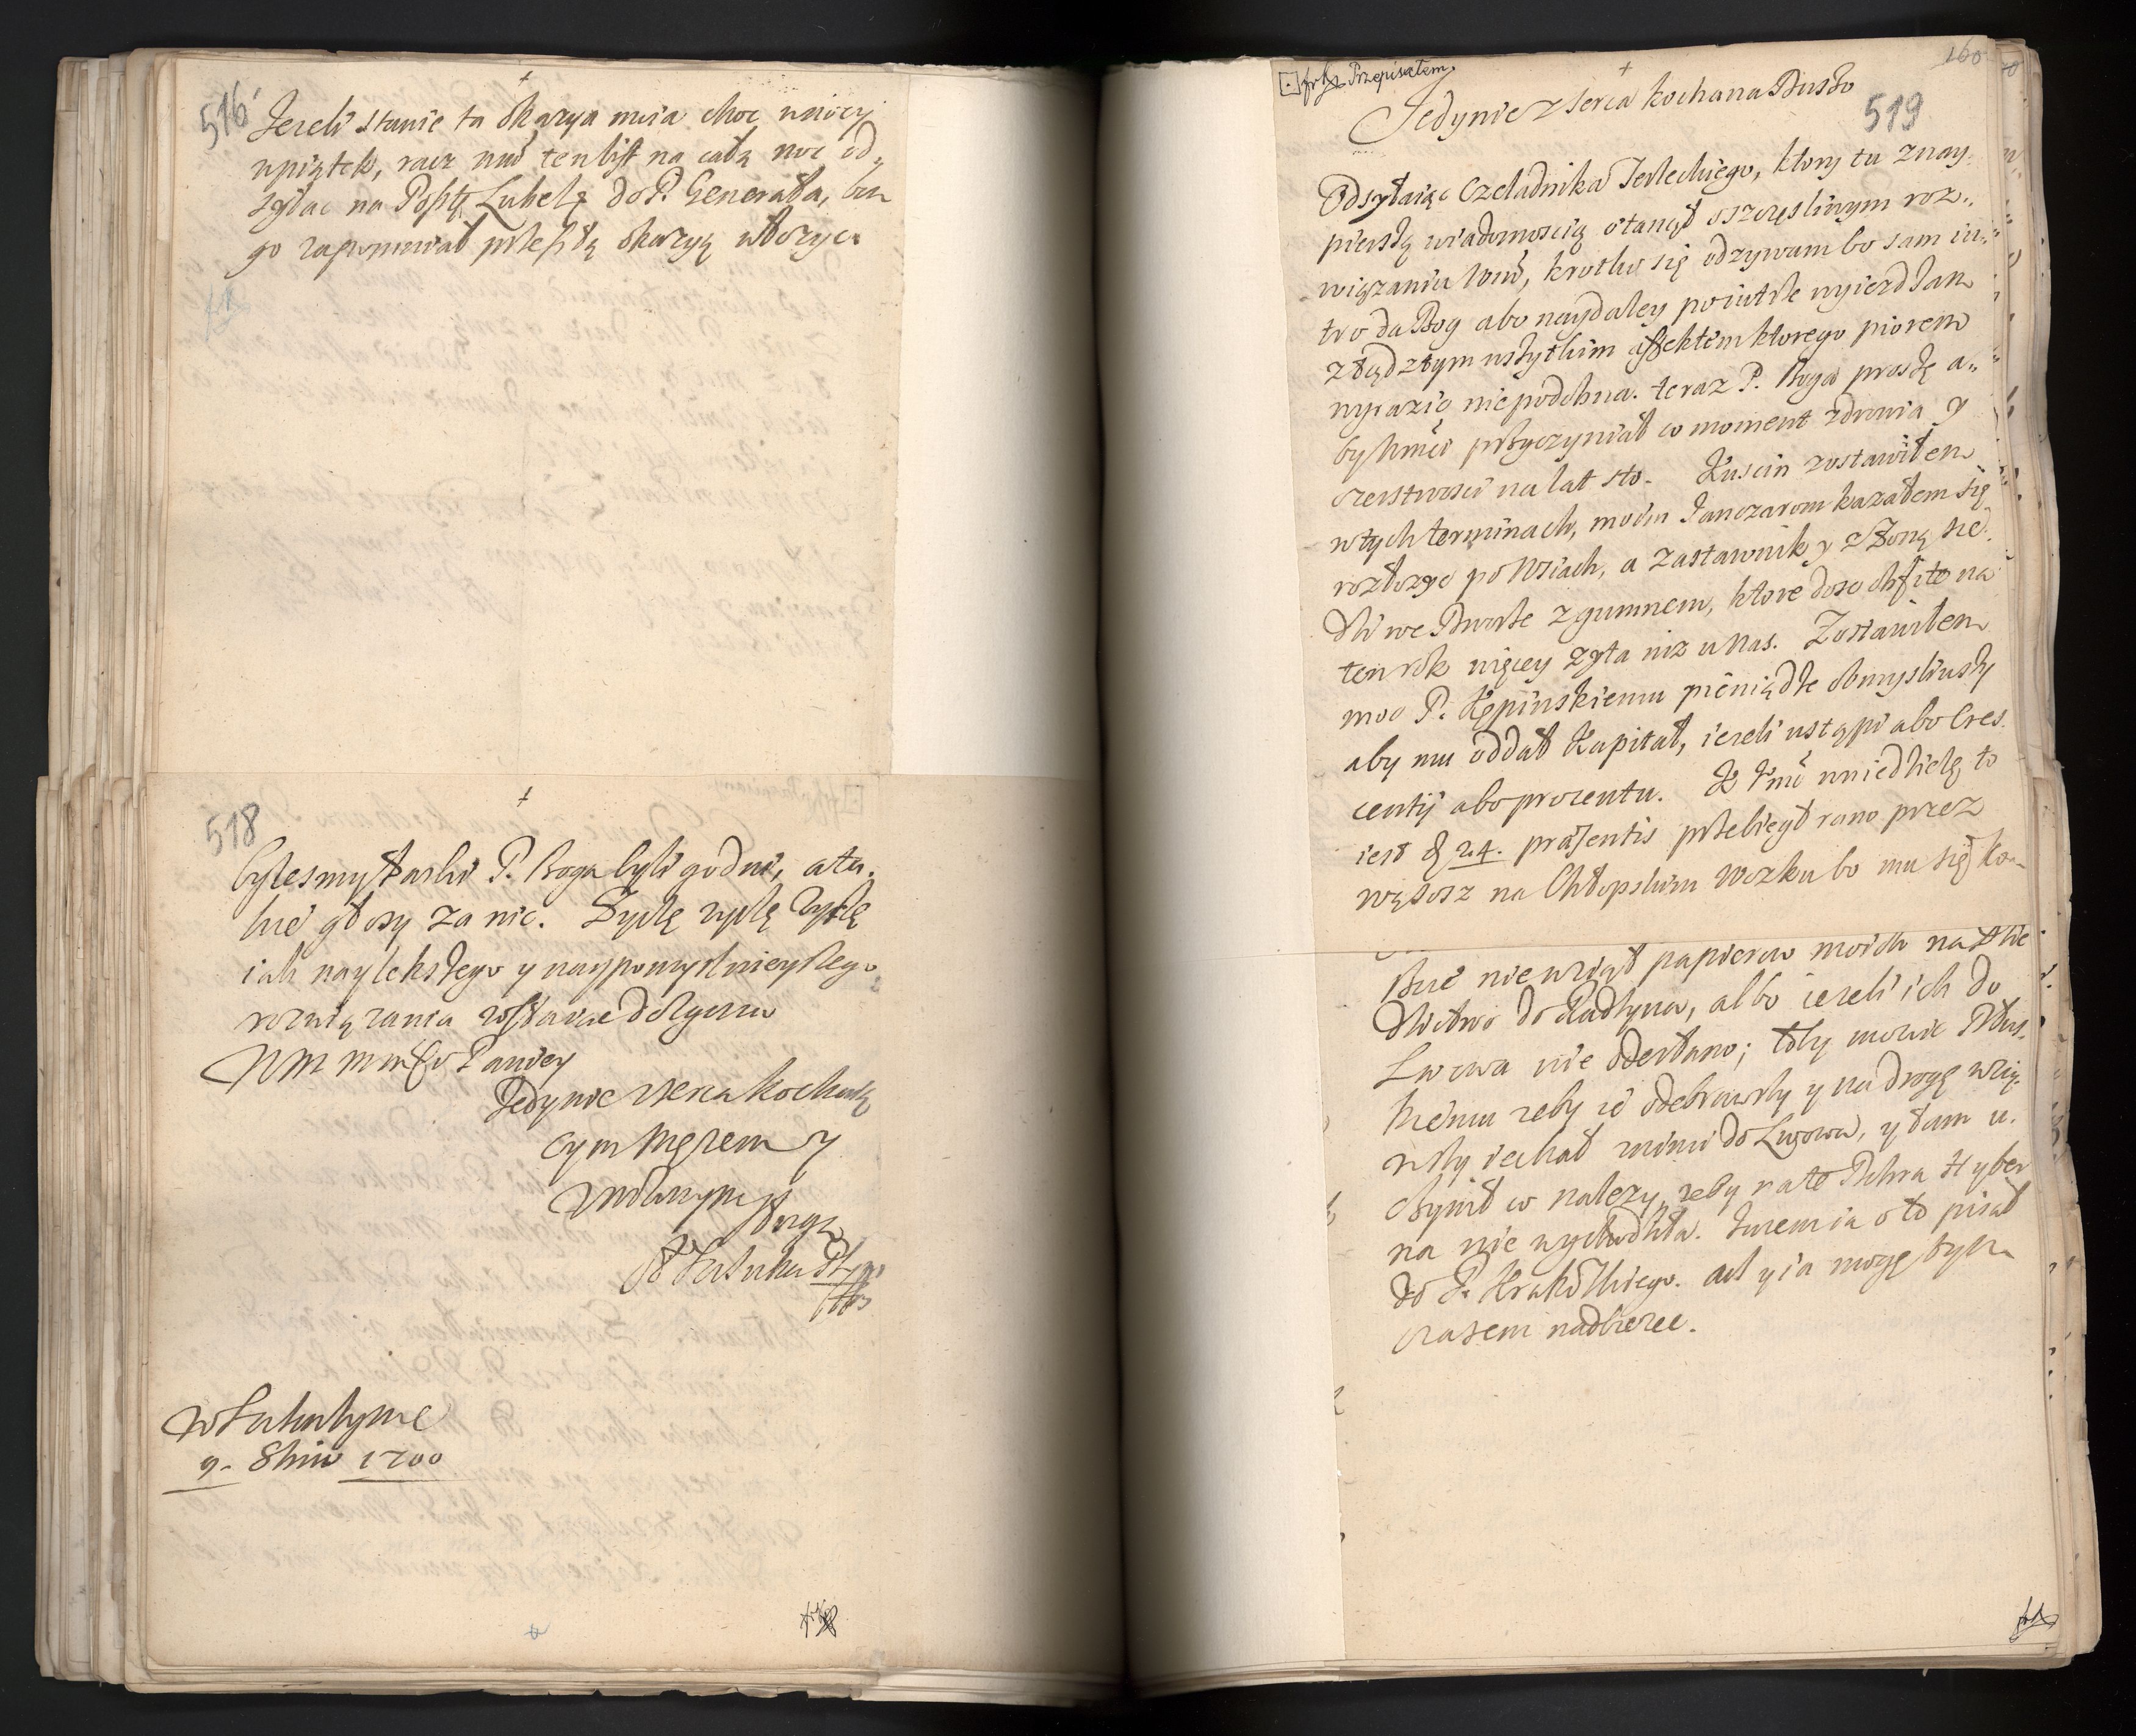 516
+
Jezeli stanie ta okazya mnia choc wnocy
wpiątek, racz mći ten list na całą noc od,
zyłac na Posztę Lubelę do P. Generała, bom
go zapomniał przeszłą okazyą włozyc.
518
+
bylesmy Łaski P. Boga byli godni, a ta,
kie głosy za nic. Zyczę zyczę Zyczę
iak naylekszego y naypomyslnieyszego
rozwiązania zostaiąc dozgonu
Jedynie zserca kochaią
cym Męzem y
Sługą
9. 8bris 1700
160
Przepisałem.
+
Jedynie z serca kochana Duszko
519
Odsyłaiąc Czeladnika Terleckiego, ktory tu z nay,,
pierszą wiadomoscią stanął oszczęsliwym roz,,
wiązaniu Wmć, krotko się odzywam bo sam iu,,
tro da Bog abo naydaley poiutrze wyiezdzam
ztąd ztym wszytkim affektem ktorego piorem
wyrazic niepodobna. teraz P. Boga proszę a,,
by Wmći przyczyniał co moment zdrowia y
czerstwosci na lat sto. Kuscin zostawiłem
wtych terminach, moim Janczarom kazałem się
rozłozyc po Wsiach, a zastawnik y z Zoną sie.
dzi we Dworze z gumnem, ktore dosc obfite na
ten rok więcey zyta niz u nas. Zostawiłem
moc P. Kępinskiemu pieniądze obmysliwszy
aby mu oddał Kapitał, iezeli ustąpi abo Cres.
centij abo procentu. K Jmć wniedzielę to
iest d 24. præsentis przebiegł rano przez
wąsosz na Chłopskim Wozku bo mu się ko-
Buć nie wziął papierow moich na Dzie
dzictwo do Radzyna, albo iezeli ich do
Lwowa nie odesłano; toby mowic Dłus.
kiemu zeby ie odebrawszy y na drogę wzią.
wszy iechał niemi do Lwowa, y tam u.
czynił co nalezy, zeby na to Dobra Hyber
na nie wychodziła. Juzem ia o to pisał
do P. Krakowskiego. ast y ia mogę tym
czasem nadbierec.